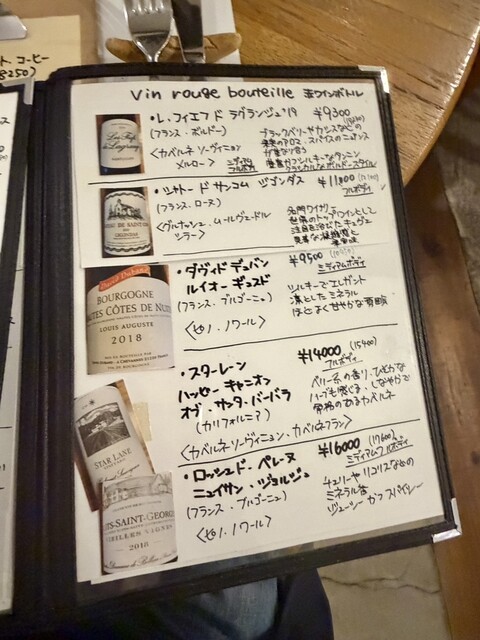 ト. コーヒー
8250)
vin rouge bouteille 赤ワインボトル
・レ・フィエフ ド ラグランジュ '19 ¥9300
(フランス・ボルドー)
〈カベルネ ソーヴィニョン
メルロー〉
ミディアム
フルボディ
ブラックベリーやカシスなどの
果実のアロマ、スパイスのニュアンス
が重なり合う
クラシカルなボルドースタイル
・シャトー ド サンコム ジゴンダス ¥11800
フルボディ
(フランス・ローヌ)
〈グルナッシュ、ムールヴェドル
シラー〉
名門ワイナリー
世界のトップワインとして
注目を浴びたキュヴェ
・ダヴィド デュバン
ルイ オーギュスト
¥9500
ミディアムボディ
(フランス・ブルゴーニュ)
〈ピノ・ノワール〉
シルキーでエレガント
凛としたミネラル
ほどよく甘やかな
David Duband
BOURGOGNE
HAUTES CÔTES DE NUITS
LOUIS AUGUSTE
2018
・スターレーン
ハッピー キャニオン
オブ・サンタ・バーバラ
(カリフォルニア)
¥14000 (15400)
フルボディ
〈カベルネソーヴィニョン、カベルネフラン〉
ベリー系の香り、ひそかな
ハーブも感じる、しなやかで
骨格のあるカベルネ
STAR LANE
・ロッシュド・ペレーヌ
ニュイサン・ジョルジュ
(フランス・ブルゴーニュ)
〈ピノ・ノワール〉
¥16000 (17600)
ミディアムフルボディ
チェリーやリコリスなどの
ミネラル香
ジューシーかつスパイシー
TS-SAINT-GEORG
EILLES VIGNES
2018